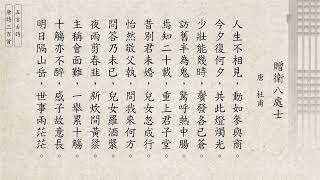 贈衛八處士
唐 杜甫
人生不相見，動如參與商。
今夕復何夕，共此燈燭光。
少壯能幾時，鬢髮各已蒼。
訪舊半為鬼，驚呼熱中腸。
焉知二十載，重上君子堂。
昔別君未婚，兒女忽成行。
怡然敬父執，問我來何方。
問答乃未已，兒女羅酒漿。
夜雨剪春韭，新炊間黃粱。
主稱會面難，一舉累十觴。
十觴亦不醉，感子故意長。
明日隔山岳，世事兩茫茫。
五言古詩
唐詩三百首